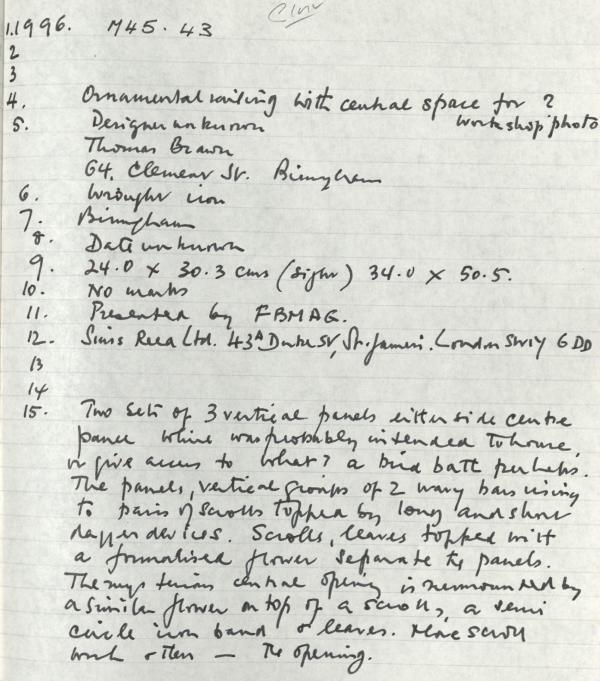 1. 1996. M45.43
2
3
4. Ornamental railing with central space for ?
workshop photo
5. Designer unknown
Thomas Brawn
64, Clement St. Birmgham
6. Wrought iron
7. Birmgham
8. Date unknown
9. 24.0 x 30.3 cms (sight) 34.0 x 50.5.
10. No marks
11. Presented by FBMAG.
12. Sims Reed Ltd. 43A Duke St, St. James. London SW1Y 6DD
13
14
15. Two sets of 3 vertical panels either side centre
panel which was probably intended to house,
or give access to what? a bird bath perhaps.
The panels, vertical groups of 2 wavy bars rising
to pairs of scrolls topped by long and short
dagger devices. Scrolls, leaves topped with
a formalised flower separate the panels.
The mysterious central opening is surmounted by
a similar flower on top of a scrolls, a semi
circle iron band & leaves. More scroll
work – the opening.